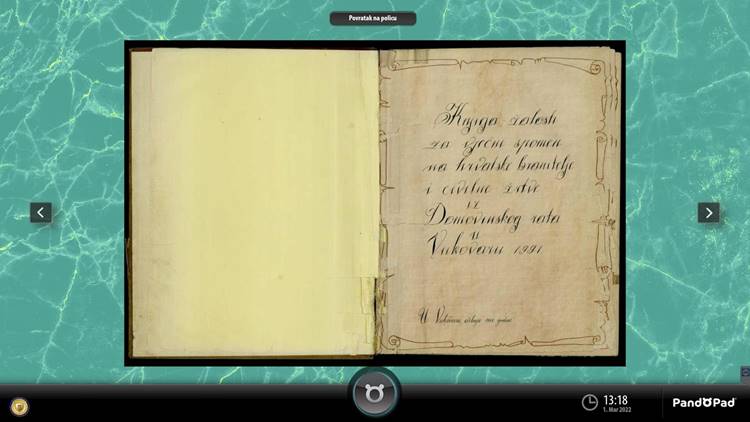 Povratak na policu
Knjiga žalosti
za vječni spomen
na hrvatske branitelje
i civilne žrtve
iz
Domovinskog rata
u
Vukovaru 1991
U Vukovaru, godine
13:18
1. Mar 2022
PandoPad